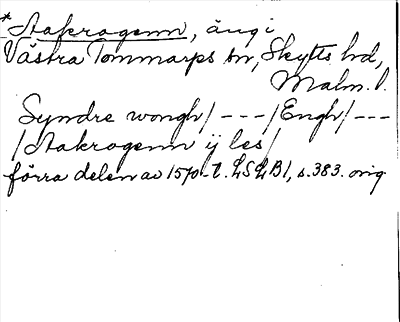 *Stakrogenn, äng i
Västra Tommarps sn, Skytts hd,
Malm. l.
Syndre wongh/ - - - /Engh/ - - -
/Stakrogenn ij les/
förra delen av 1570-t. LSLB1, s. 383. orig.